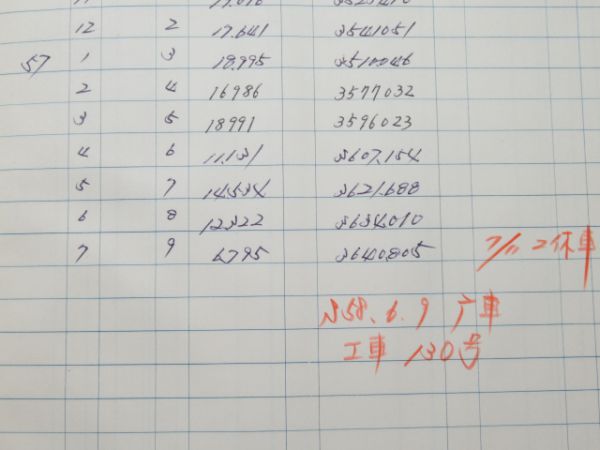 12 2 17.641 3541051
57 1 3 18.995 3560046
2 4 16986 3577032
3 5 18991 3596023
4 6 11.131 3607.154
5 7 14.534 3621.688
6 8 12.322 3634.010
7 9 6.795 3640.805
7/11 休車
S58.6.9 广車
工車 130号